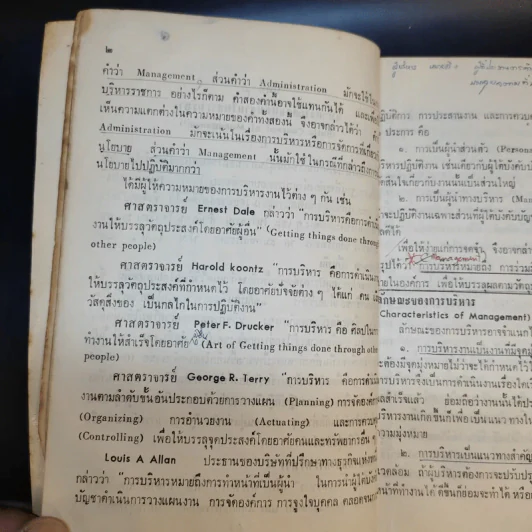 ๒
คำว่า Management ส่วนคำว่า Administration มักจะใช้ใน
บริหารราชการ อย่างไรก็ตาม คำสองคำนี้อาจใช้แทนกันได้ และเพื่อ
เห็นความแตกต่างในความหมายของคำทั้งสองนี้ จึงอาจกล่าวได้ว่า
Administration มักจะเน้นในเรื่องการบริหารหรือการจัดการที่เกี่ยว
นโยบาย ส่วนคำว่า Management นั้นมักใช้ในกรณีที่กล่าวถึงการ
นโยบายไปปฏิบัติมากกว่า
ได้มีผู้ให้ความหมายของการบริหารงานไว้ต่าง ๆ กัน เช่น
ศาสตราจารย์ Ernest Dale กล่าวว่า "การบริหารคือการดำเนิน
งานให้บรรลุวัตถุประสงค์โดยอาศัยผู้อื่น" (Getting things done through
other people)
ศาสตราจารย์ Harold koontz "การบริหาร คือการดำเนินงาน
ให้บรรลุวัตถุประสงค์ที่กำหนดไว้ โดยอาศัยปัจจัยต่าง ๆ ได้แก่ คน
วัสดุสิ่งของ เป็นกลไกในการปฏิบัติงาน"
ศาสตราจารย์ Peter F. Drucker "การบริหาร คือ ศิลปในการ
ทำงานให้สำเร็จโดยอาศัย (Art of Getting things done through other
people)
ศาสตราจารย์ George R. Terry "การบริหาร คือการดำเนิน
งานตามลำดับขั้นอันประกอบด้วยการวางแผน (Planning) การจัดองค์การ
(Organizing) การอำนวยงาน (Actuating) และการควบคุม
(Controlling) เพื่อให้บรรลุจุดประสงค์โดยอาศัยคนและทรัพยากรอื่น ๆ
Louis A Allan ประธานของบริษัทที่ปรึกษาทางธุรกิจ
กล่าวว่า "การบริหารหมายถึงการทำหน้าที่เป็นผู้นำ ในการนำผู้ใต้บังคับ
บัญชาดำเนินการวางแผนงาน การจัดองค์การ การจูงใจบุคคล ตลอดจน
ปฏิบัติการ การประสานงาน และการควบคุม
ประการ คือ
๑. การเป็นผู้นำส่วนตัว (Personal
บริหารปฏิบัติงาน เช่นเดียวกับผู้ใต้บังคับบัญชา
ตัดสินใจเกี่ยวกับงานนั้นเป็นส่วนใหญ่
๒. การเป็นผู้นำทางบริหาร (Man
จะปฏิบัติงานเฉพาะส่วนที่ผู้ใต้บังคับบัญชา
ได้
เพื่อให้ง่ายแก่การจดจำ จึงอาจกล่าว
รุปได้ว่า management การบริหารหมายถึง การรวม
ภายในองค์การ เพื่อให้บรรลุผลตามวัตถุประสงค์
ลักษณะของการบริหาร
Characteristics of Management)
ลักษณะของการบริหารอาจจำแนก
๑. การบริหารงานเป็นงานที่มีจุดมุ่ง
จะต้องมีจุดมุ่งหมายไม่ว่าจะได้กำหนดไว้
การบริหารจึงเป็นการดำเนินงานเรื่องใด
สำเร็จแล้ว ย่อมถือว่างานนั้นได้
บริหารงานเกิดขึ้นก็เพื่อเป็นแนวทางใน
ความมุ่งหมาย
๒. การบริหารเป็นแนวทางสำคัญ
แวดล้อม ถ้าผู้บริหารต้องการจะปรับปรุง
หน้าที่ทำงานได้ดีขึ้นก็ย่อมจะทำได้